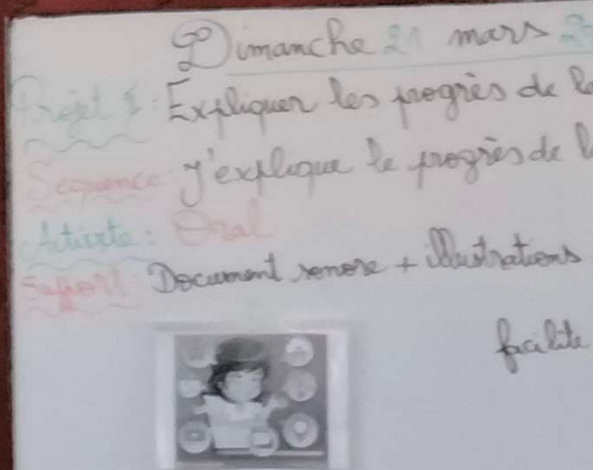 Dimanche 21 mars
Projet 1: Expliquer les progrès de
Sequence: J'explique le progrès de
Activité: Oral
Support: Document sonore + illustrations
facilite